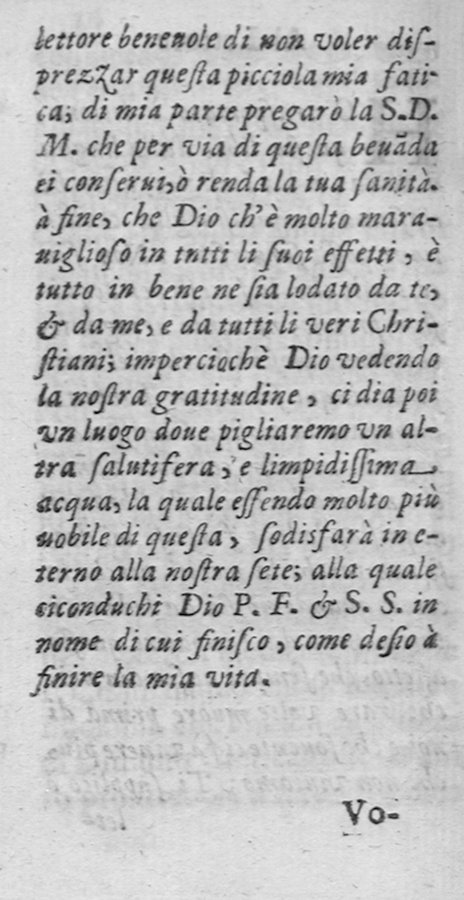 lettore beneuole di non voler diſ-
prezzar queſta picciola mia fati-
ca; di mia parte pregarò la S.D.
M. che per via di queſta beuãda
ei conſerui, ò renda la tua ſanità.
à fine, che Dio ch'è molto mara-
uiglioſo in tntti li ſuoi effetti, è
tutto in bene ne ſia lodato da te,
& da me, e da tutti li veri Chri-
ſtiani; imperciochè Dio vedendo
la noſtra gratitudine, ci dia poi
vn luogo doue pigliaremo vn al-
tra ſalutifera, e limpidiſſima
acqua, la quale eſſendo molto più
uobile di queſta, ſodisfarà in e-
terno alla noſtra ſete; alla quale
ciconduchi Dio P. F. & S. S. in
nome di cui finiſco, come deſio à
finire la mia vita.
Vo-